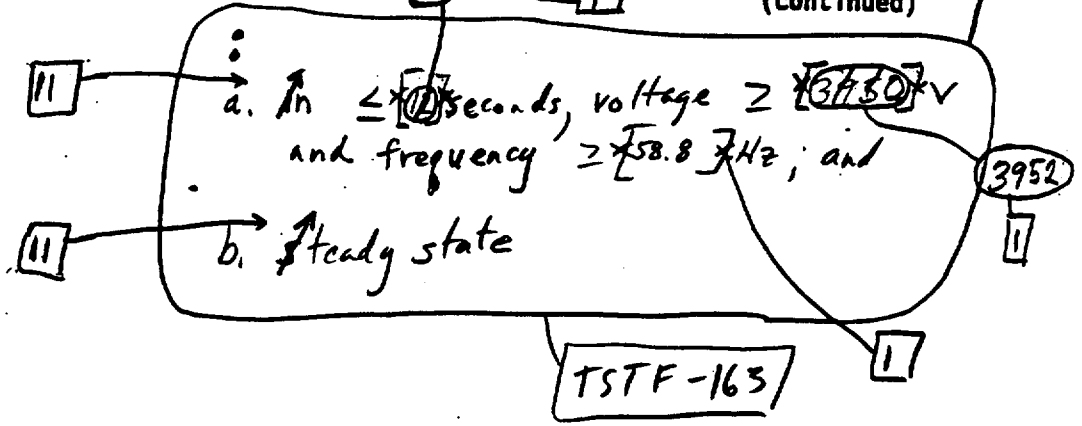 (Continued)
:
11 a. In ≤ *[12]* seconds, voltage ≥ *[3750]* V
and frequency ≥ *[58.8]* Hz; and
3952
1
11 b. Steady state
1
TSTF-163